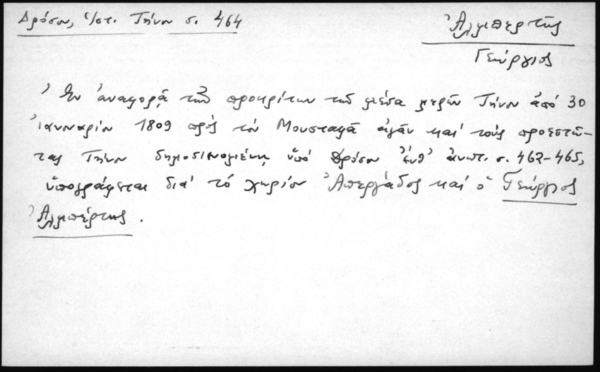 Δρόσου, Ἱστ. Τήνου σ. 464
Ἀλμπέρτης
Γεώργιος
Ἐν ἀναφορᾷ τῶν προκρίτων τοῦ μέσα μερῶν Τήνου ἀπό 30
Ἰανουαρίου 1809 πρός τόν Μουσταφᾶ ἀγᾶν καί τούς προεστῶ-
τας Τήνου δημοσιευομένῃ ὑπό Δρόσου ἐνθ' ἀνωτ. σ. 462-465,
ὑπογράφεται διά τό χωρίον Ἀπεργάδος καί ὁ Γεώργιος
Ἀλμπέρτης.